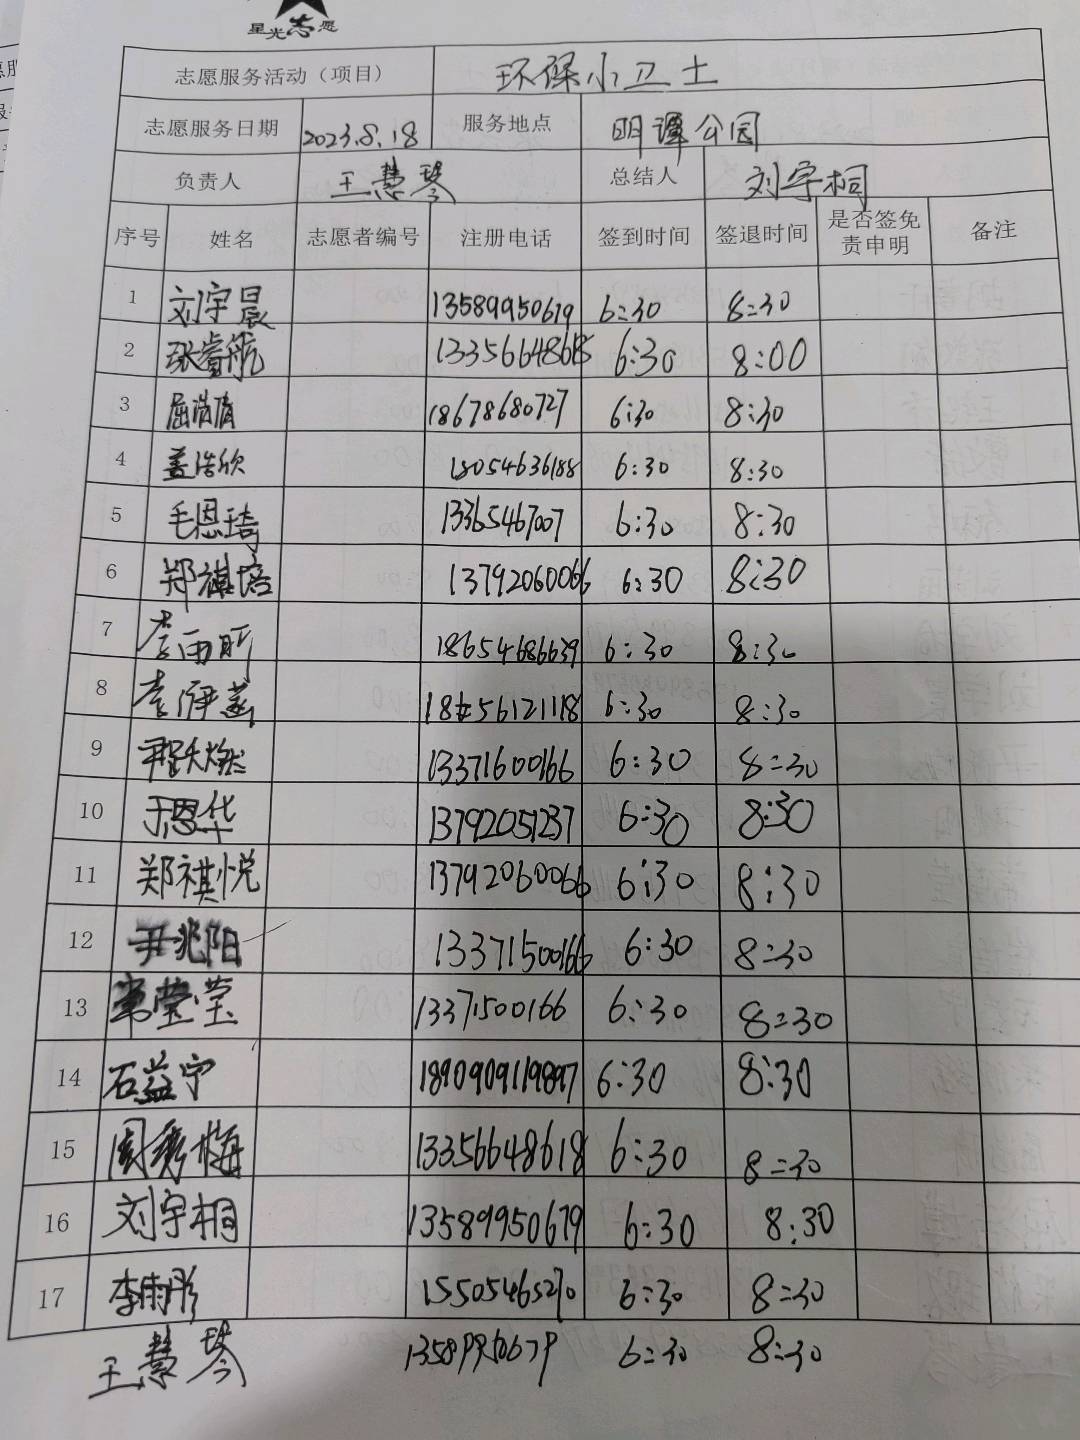 星光志愿
志愿服务活动（项目） 环保小卫士
志愿服务日期 2023.8.18 服务地点 明潭公园
负责人 王慧琴 总结人 刘宇桐
序号 姓名 志愿者编号 注册电话 签到时间 签退时间 是否签免责申明 备注
1 刘宇晨 13589950679 6:30 8:30
2 张睿航 13356648618 6:30 8:00
3 18678680727 6:30 8:30
4 盖浩欣 18054636188 6:30 8:30
5 毛恩琦 13365467007 6:30 8:30
6 郑祺培 13792060066 6:30 8:30
7 李雨昕 18654686639 6:30 8:30
8 李伊菡 6:30 8:30
9 13371600166 6:30 8:30
10 于恩华 13792051237 6:30 8:30
11 郑祺悦 13792060066 6:30 8:30
12 尹兆阳 13371500166 6:30 8:30
13 常莹莹 13371500166 6:30 8:30
14 石益宁 6:30 8:30
15 周秀梅 13356648618 6:30 8:30
16 刘宇桐 13589950679 6:30 8:30
17 李雨彤 15505465270 6:30 8:30
王慧琴 13589950679 6:30 8:30